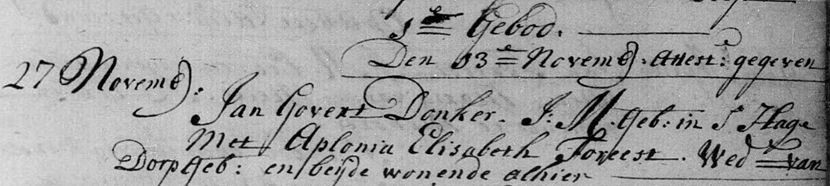 1e Gebod.
Den 13e Novemb: Attest: gegeven
27 Novemb:
Jan Govert Donker. J:M. Geb: in S Hage
Met Aplonia Elisabeth Foreest. Wed=e van
Dorp Geb: en beijde wonende alhier